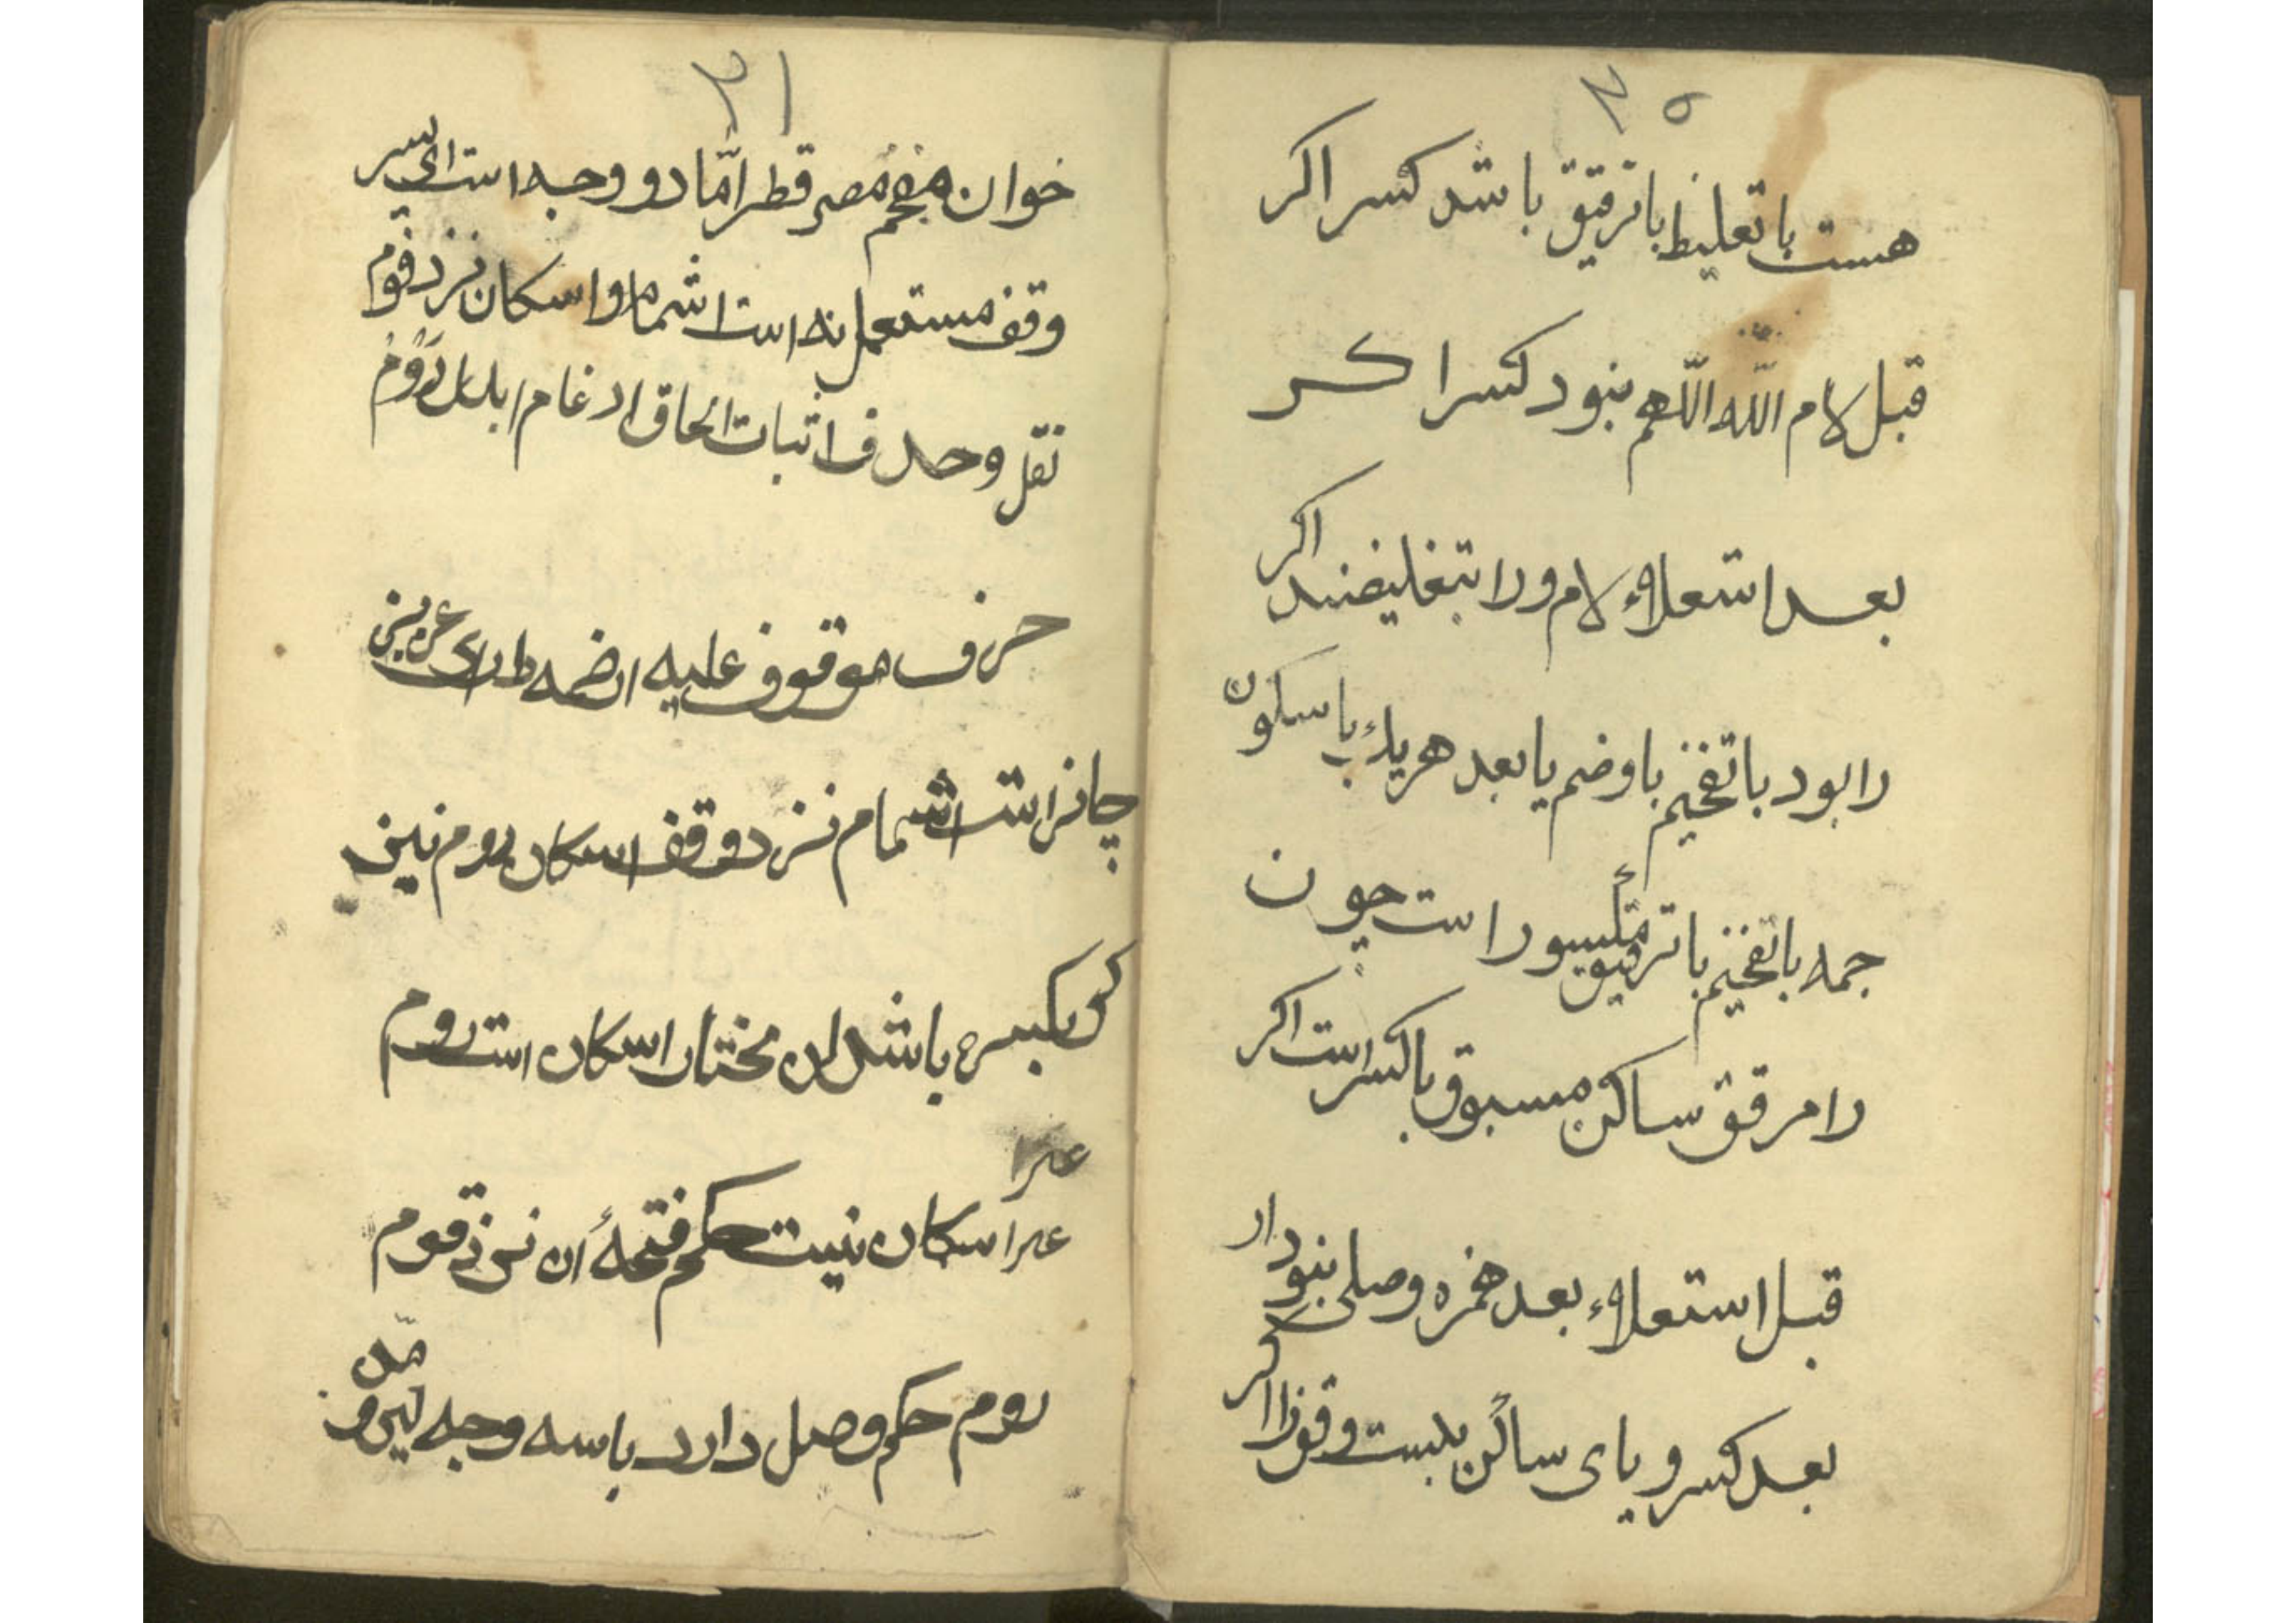 ۲۵
هست با تغلیظ با ترقیق باشد کسر اکر
قبل لام الله اللهم بنود کسرا کر
بعد استعلاء لام ورا بتغلیضند اکر
را بود با تفخیم با وضم یا بعد هریك با سکون
جمه با تفخیم با ترقیق متلبسور است چون
را مرقق ساکن مسبوق با کسر است اکر
قبل استعلاء بعد همزه وصلی بنود ار
بعد کسر و یای ساکن وقوزا اکر
۲۱
خوان مفخم مصر قطر امّا دو وجه است ای پسر
وقف مستعمل نه است اشمام و اسکان نزد قوم
نقل وحدف اثبات الحاق ادغام ابدال روم
حرف موقوف علیه ار ضمه دارای عزیز
جائز است اشمام نزد وقف اسکان روم نیز
کو بکسره باشد ان مختار اسکان است روم
عرا
عرا سکان نیست حکم فتحهٔ ان نزد قوم
روم حکم وصل دارد باسه وجه لین و مدّ